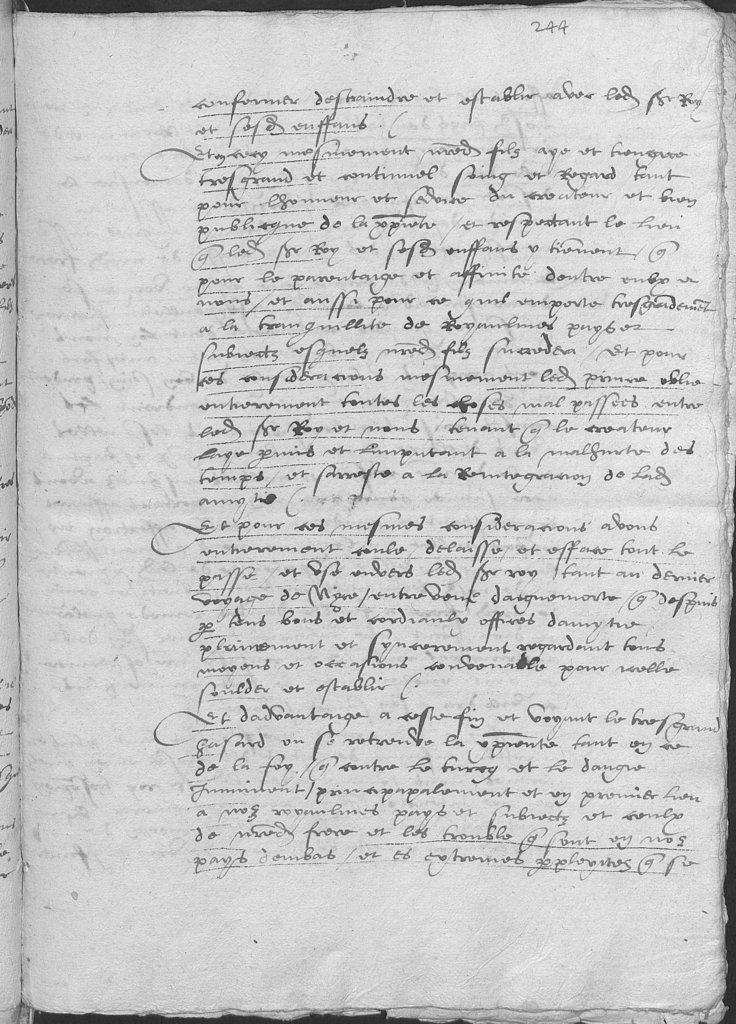 244
confermer destraindre et establir avec led. Sr Roy
et sesd. enffans /.
Et q cecy mesmement nred. filz aye et tiengne
tresgrand et continuel soing et Regard tant
pour lhonneur et service du createur et bien
publicque de la xpiente / et respectant le lien
q led. Sr Roy et sesd. enffans y tiennent / q
pour le parentaige et affinite dentre eulx et
nous / et aussi pour ce quil emporte tresgrandement
a la tranquillite de Royaulmes pays et
subiectz esquelz nred. filz succedera / Et pour
ces consideracions mesmement led. prince oblie
entierement toutes les choses mal passees entre
led. Sr Roy et nous tenant q le createur
laye permis et limputant a la malheurte des
temps / et sarreste a la Reintegracion de lad.
amytie /.
Et pour ces mesmes consideracions avons
entierement oublie delaisse et efface tout le
passe et use envers led. Sr roy tant au dernier
voyage de Nyce / entrevenue daiguemorte / q despuis
p tous bons et cordiaulx offices damytie
plainement et syncerement regardant tous
moyens et occasions convenable pour icelle
soulder et establir /.
Et dadvantaige a ceste fin et voyant le tresgrand
hasard ou se retreuve la xpiente tant en ce
de la foy / q contre le turcq et le dangie
Imminent / principapalement et en premier lieu
a noz royaulmes pays et subiectz et ceulx
de nred. frere et les trouble q sont en noz
pays denbas / et es extremes pplexitez q se